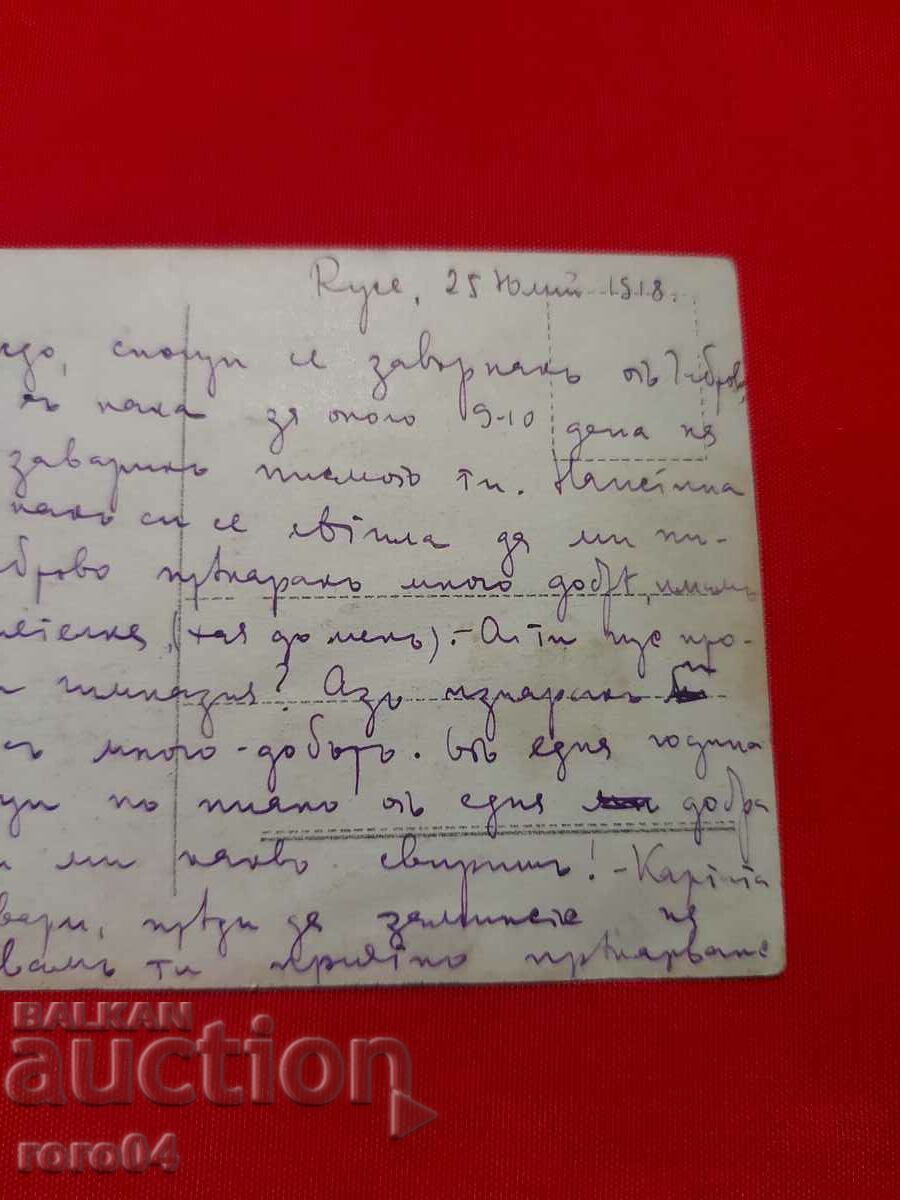 Русе, 25 Юлий 1918.
снощи се завърнахъ отъ Габрово,
за около 9-10 дена на
заварихъ писмото ти. Наистина
какъ си се сѣтила да ми пи-
брово прѣкарахъ много добрѣ, имамъ
ятелка, (тая до менъ). - А ти где про-
гимназия? Азъ изкарахъ
съ много-добъръ. Отъ една година
по пияно отъ една добра
ми какво свиришъ! - Картата
вари, прѣди да заминете на
вамъ ти приятно прѣкарване
BALKAN
auction
roro04